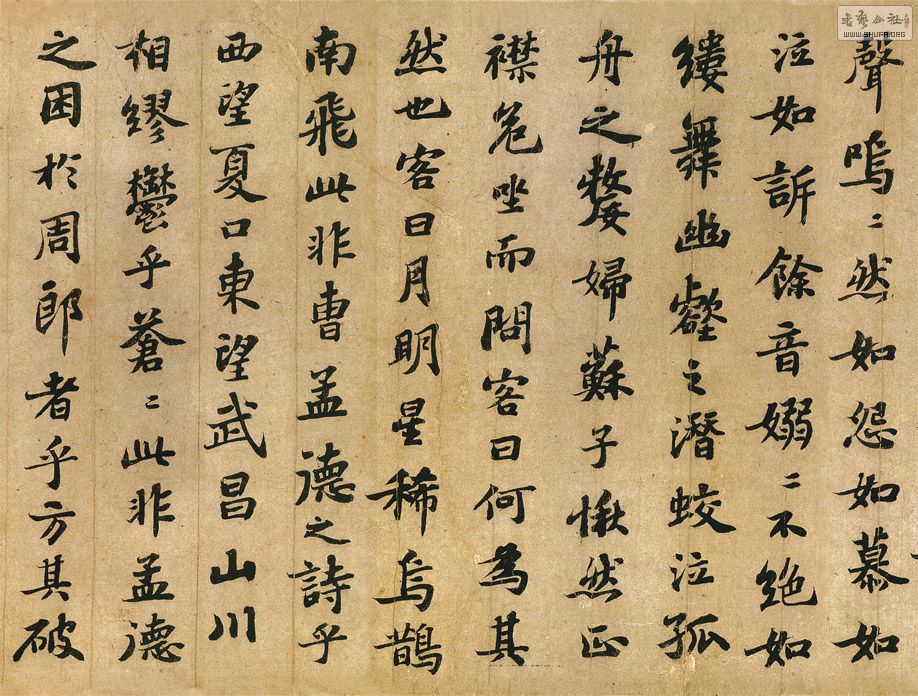 聲嗚〻然如怨如慕如
泣如訴餘音嫋〻不絶如
縷舞幽壑之潛蛟泣孤
舟之嫠婦蘇子愀然正
襟危坐而問客曰何為其
然也客曰月明星稀烏鵲
南飛此非曹孟德之詩乎
西望夏口東望武昌山川
相繆鬱乎蒼〻此非孟德
之困於周郎者乎方其破
書藝公社
WWW.SHUFA.ORG